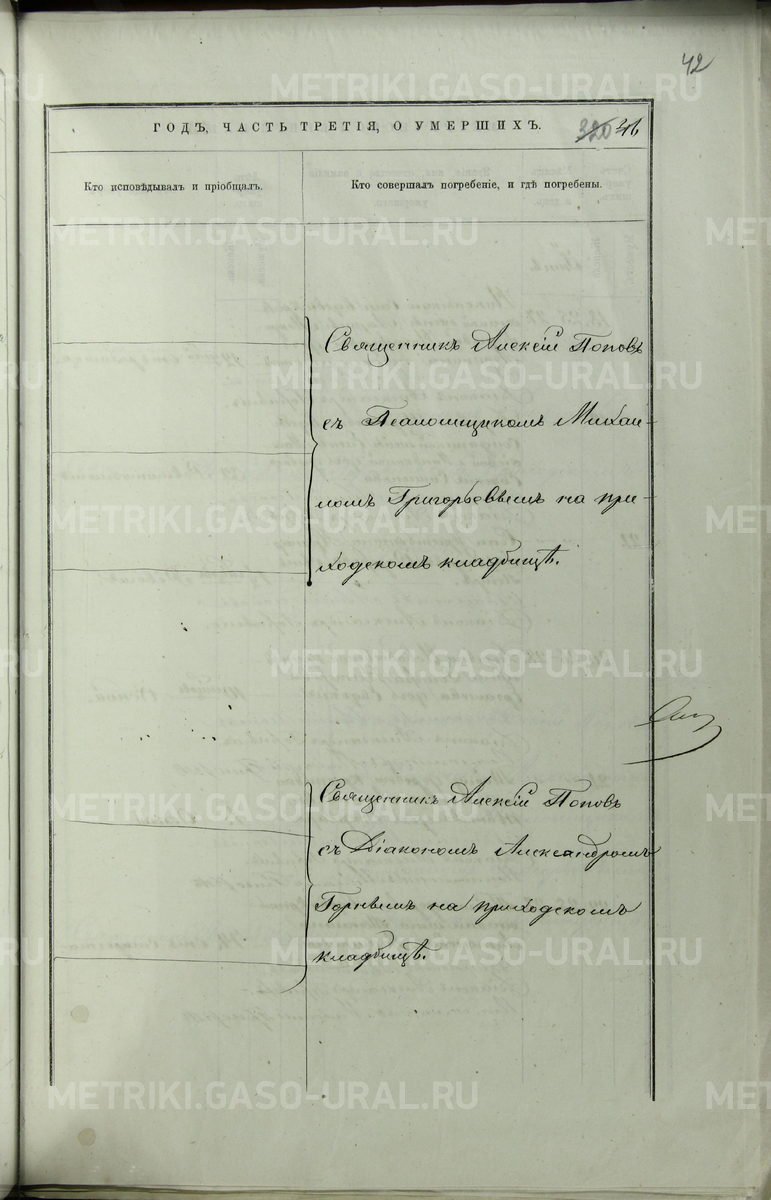 42
ГОДЪ, ЧАСТЬ ТРЕТІЯ, О УМЕРШИХЪ.
320
Кто исповѣдывалъ и пріобщалъ.
Кто совершалъ погребеніе, и гдѣ погребены.
Священникъ Алексій Поповъ
съ Псаломщикомъ Михаи-
ломъ Григорьевымъ на при-
ходскомъ кладбищѣ.
Священникъ Алексій Поповъ
съ Діакономъ Александромъ
Горнымъ на приходскомъ
кладбищѣ.
METRIKI.GASO-URAL.RU